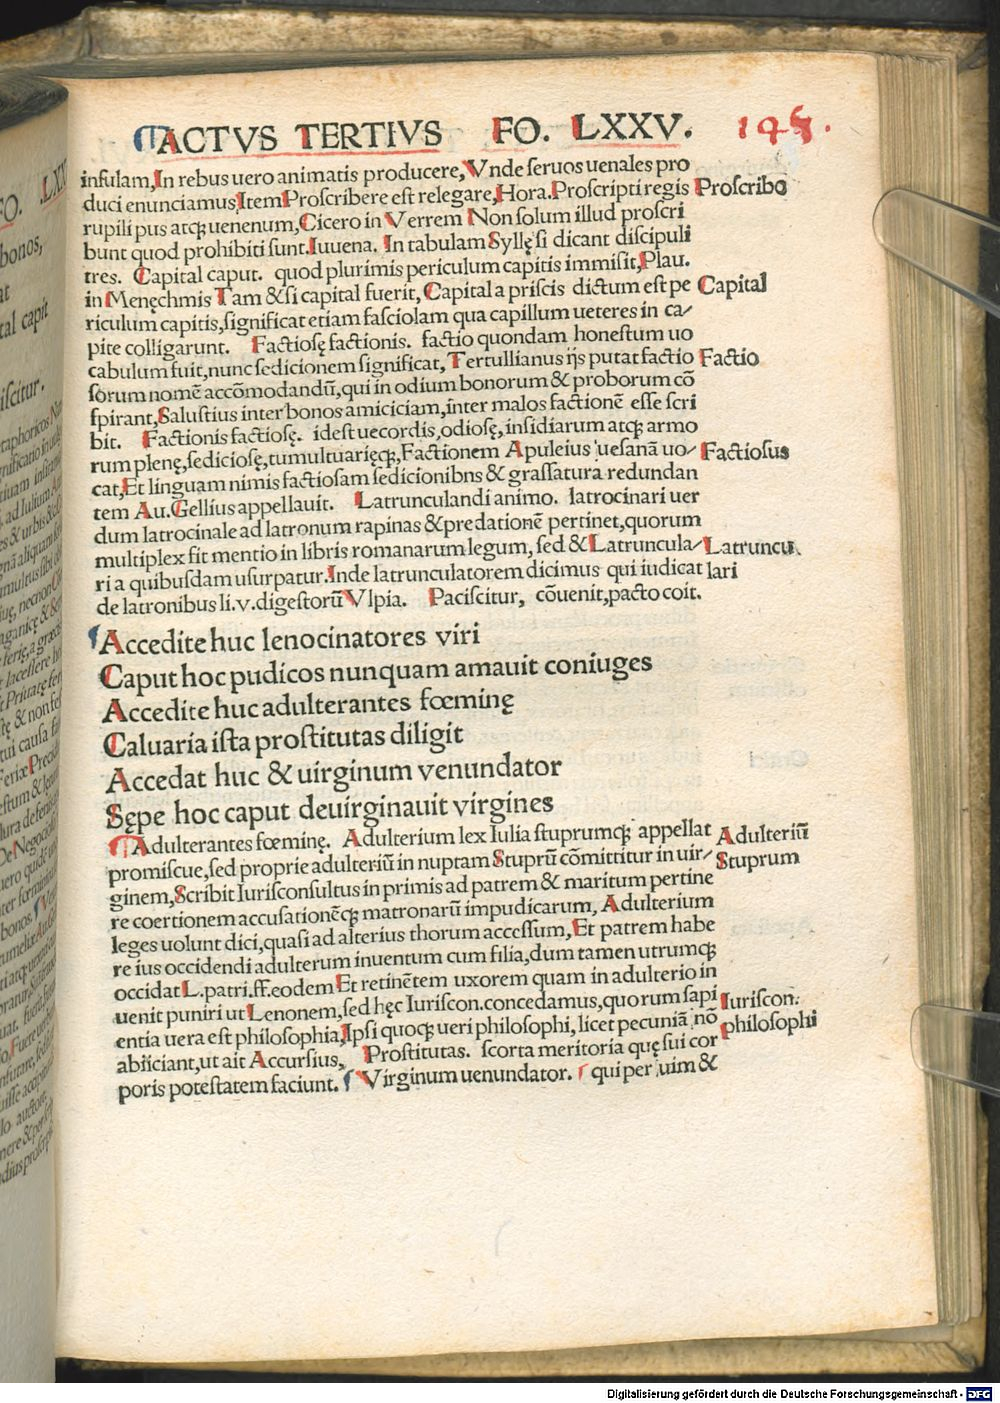 ACTVS TERTIVS FO. LXXV. 145.
insulam, In rebus uero animatis producere, Vnde seruos uenales pro
duci enunciamus, Item Proscribere est relegare, Hora. Proscripti regis Proscribo
rupili pus atqꝫ uenenum, Cicero in Verrem Non solum illud proscri
bunt quod prohibiti sunt. Iuuena. In tabulam Syllę si dicant discipuli
tres. Capital caput. quod plurimis periculum capitis immisit, Plau.
in Menęchmis Tam & si capital fuerit, Capital a priscis dictum est pe Capital
riculum capitis, significat etiam fasciolam qua capillum ueteres in ca⸗
pite colligarunt. Factiosę factionis. factio quondam honestum uo
cabulum fuit, nunc sedicionem significat, Tertullianus ijs putat factio Factio
sorum nomē accōmodandū, qui in odium bonorum & proborum cō
spirant, Salustius inter bonos amiciciam, inter malos factionē esse scri
bit. Factionis factiosę. idest uecordis, odiosę, insidiarum atqꝫ armo
rum plenę, sediciosę, tumultuarięqꝫ, Factionem Apuleius uesanā uo⸗ Factiosus
cat, Et linguam nimis factiosam sedicionibns & grassatura redundan
tem Au. Gellius appellauit. Latrunculandi animo. latrocinari uer
dum latrocinale ad latronum rapinas & predationē pertinet, quorum
multiplex fit mentio in libris romanarum legum, sed & Latruncula⸗ Latruncu
ri a quibusdam usurpatur. Inde latrunculatorem dicimus qui iudicat lari
de latronibus li. v. digestorū Vlpia. Paciscitur, cōuenit, pacto coit.
Accedite huc lenocinatores viri
Caput hoc pudicos nunquam amauit coniuges
Accedite huc adulterantes fœminę
Caluaria ista prostitutas diligit
Accedat huc & uirginum venundator
Sępe hoc caput deuirginauit virgines
Adulterantes fœminę. Adulterium lex Iulia stuprumqꝫ appellat Adulteriū
promiscue, sed proprie adulteriū in nuptam Stuprū cōmittitur in uir⸗ Stuprum
ginem, Scribit Iurisconsultus in primis ad patrem & maritum pertine
re coertionem accusationēqꝫ matronarū impudicarum, Adulterium
leges uolunt dici, quasi ad alterius thorum accessum, Et patrem habe
re ius occidendi adulterum inuentum cum filia, dum tamen utrumqꝫ
occidat L. patri. ff. eodem Et retinētem uxorem quam in adulterio in
uenit puniri ut Lenonem, sed hęc Iuriscon. concedamus, quorum sapi Iuriscon.
entia uera est philosophia, Ipsi quoqꝫ ueri philosophi, licet pecuniā nō philosophi
abijciant, ut ait Accursius, Prostitutas. scorta meritoria quę sui cor
poris potestatem faciunt. Virginum uenundator. qui per uim &
Digitalisierung gefördert durch die Deutsche Forschungsgemeinschaft - DFG